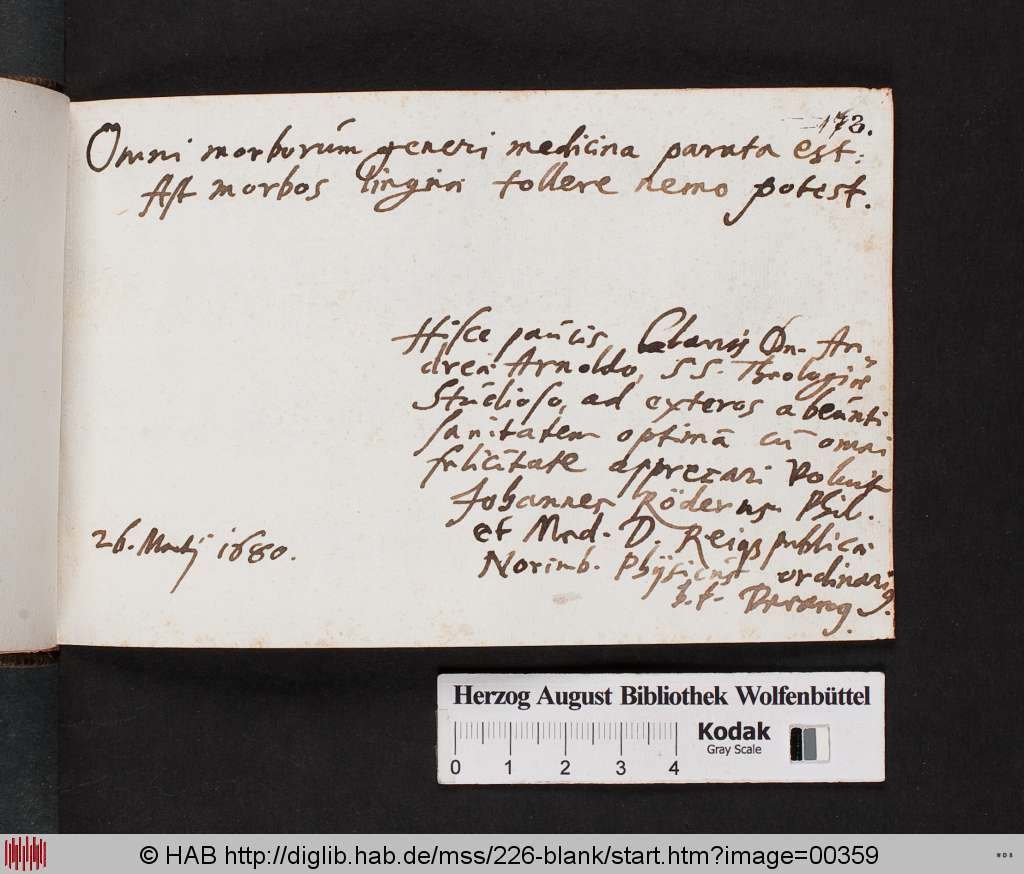 173.
Omni morborúm generi medicina parata est:
Ast morbos linguæ tollere nemo potest.
Hisce paúcis Clariss Dn. An-
dreæ Arnoldo, SS. Theologiæ
Stúdioso, ad exteros abeúnti
sanitatem optimā cū omni
felicitate apprecari voluit
Johannes Röderus. Phil.
et Med. D. Reiqs publicæ
Norimb. Phÿsicús ordinariq.
26. Martij 1680.
Herzog August Bibliothek Wolfenbüttel
Kodak
Gray Scale
0 1 2 3 4
© HAB http://diglib.hab.de/mss/226-blank/start.htm?image=00359
WDB